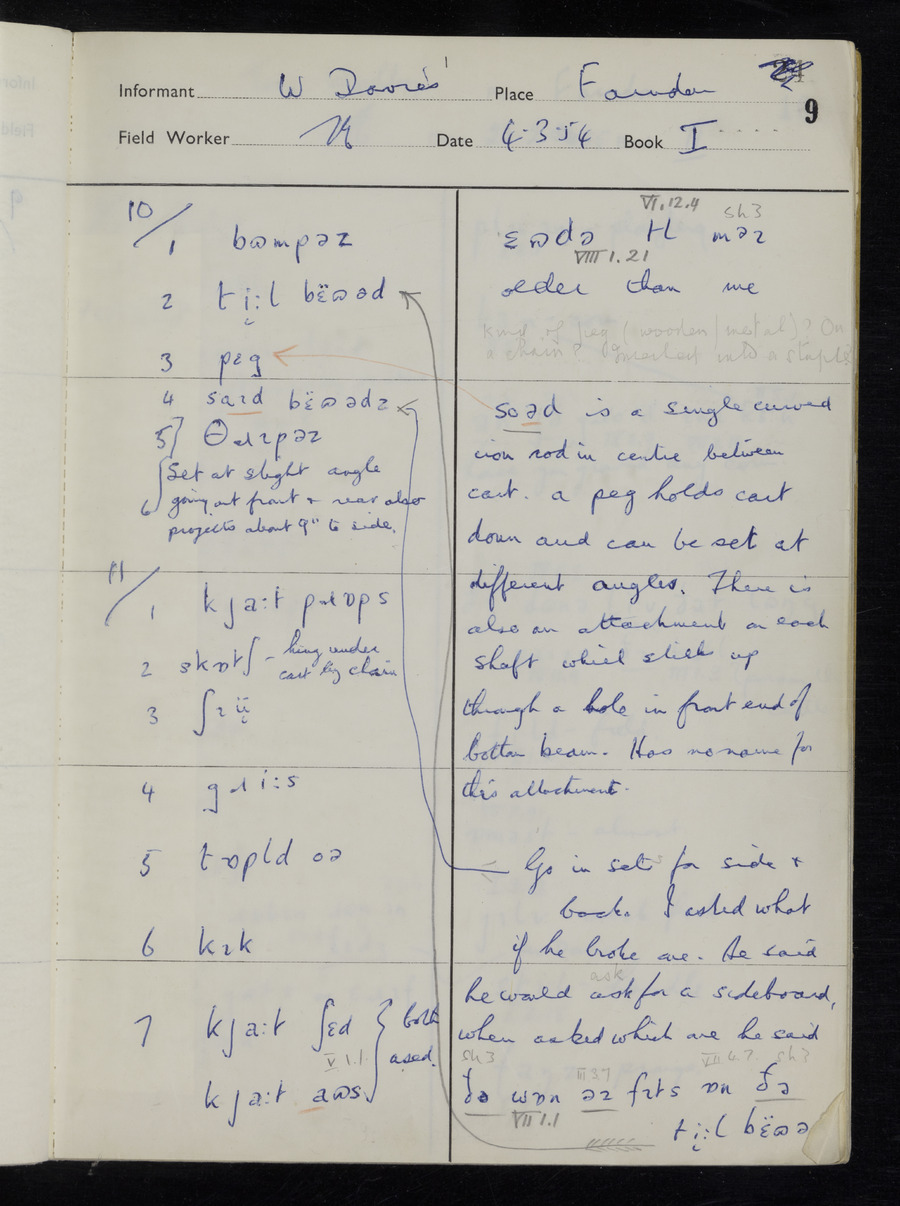 Informant W Davies Place Farndon
9
Field Worker Date 4-3-54 Book I
10/
1 bɷmpəz
2 ti̤:l bɛ̈ɷəd
3 pɛg
4 saɪd bɛ̈ɷədz
5
6 Set at slight angle
going out front & rear also
projects about 9" to side.
11/
1 kɹa:t pɹɒps
2 skɒtʃ - hing under
cart by chain
3
4 gɹi:s
5
6 kɪk
7 kɹa:t ʃɛd } both
V 1.1. used.
kɹa:t aɷs
VI.12.4 sh3
VIII 1.21
older than me
kind of peg (wooden/metal)? On
a chain? Inserted into a staple
soəd is a single curved
iron rod in centre between
cart. a peg holds cart
down and can be set at
different angles. There is
also an attachment on each
shaft which sticks up
through a hole in front end of
bottom beam. Has no name for
this attachment.
Go in sets for side &
back. I asked what
if he broke one. He said
ask
he would ask for a sideboard,
when asked which one he said
sh3 III 3.7 VII 4.7. sh3
ðə wɒn əɪ fɪts ɒn ðə
VII 1.1
ti̤:l bɛ̈ɷə